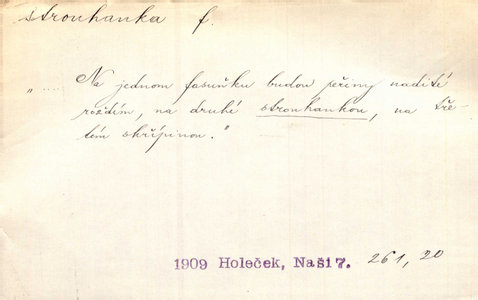 strouhanka f.
„..... Na jednom fasuňku budou peřiny nadité
roždím, na druhé strouhankou, na tře-
tém skřípinou."
1909 Holeček, Naši 7. 261, 20